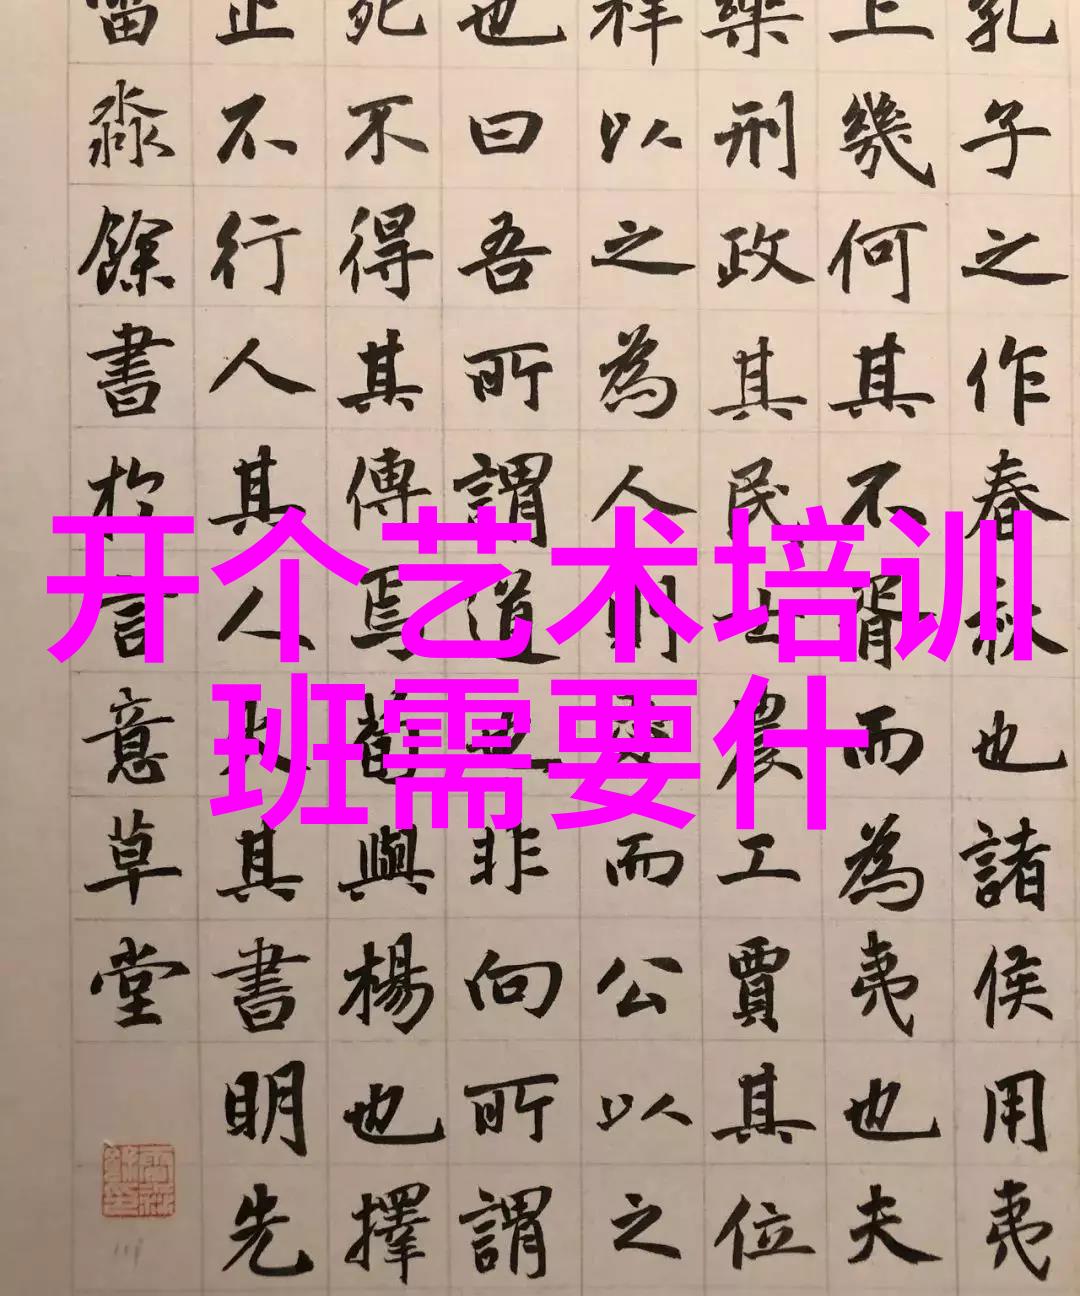 开个艺术培训
班需要什
孔子之作春秋也諸侯用夷
上幾何其不胥而為夷也夫
樂刑政其民士農工賈其位
祥以之為人則愛而公以之
也曰吾所謂道也非向所謂
死不得其傳焉荀與楊也擇
止不行人其人火其書明先
淼餘書於言意草堂